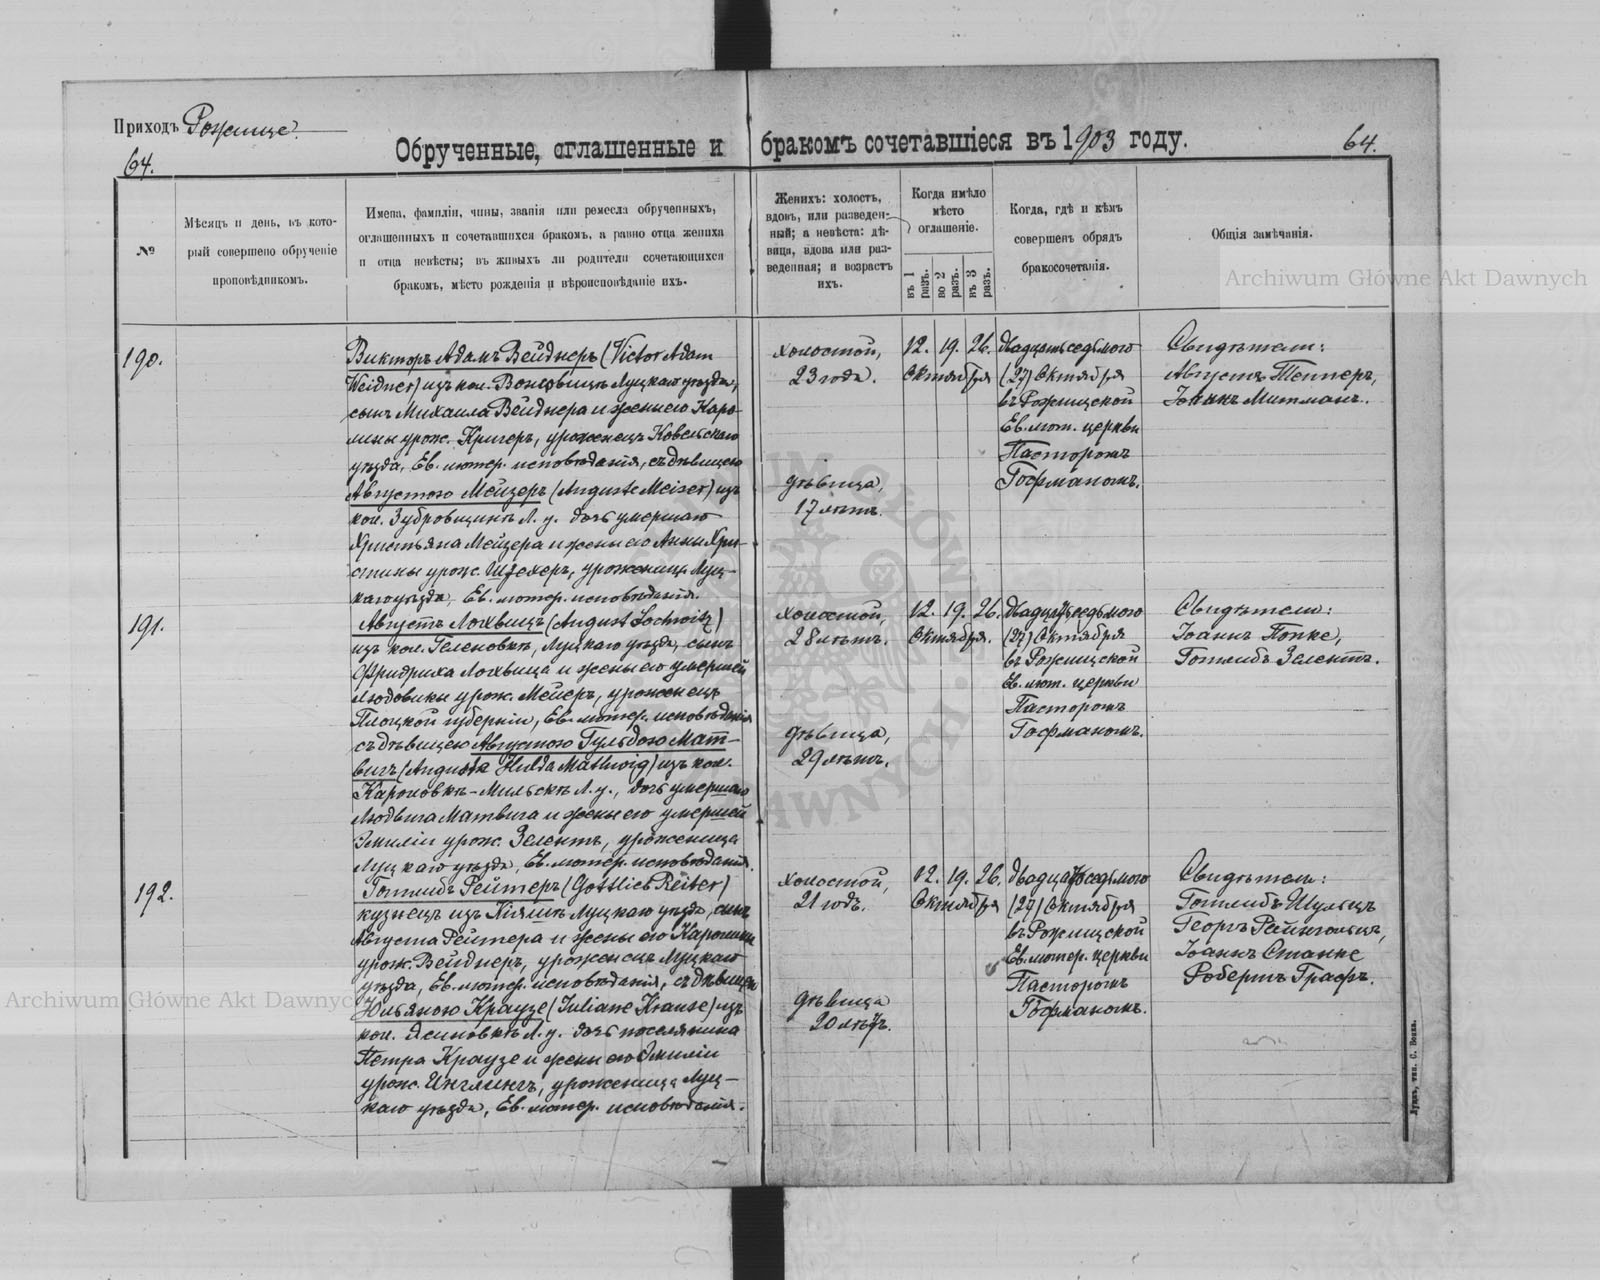 Приходъ Рожище.
64.
Обрученные, оглашенные и бракомъ сочетавшіеся въ 1903 году.
64.
№
Мѣсяцъ и день, въ кото-
рый совершено обрученіе
проповѣдникомъ.
Имена, фамиліи, чины, званія или ремесла обрученныхъ,
оглашенныхъ и сочетавшихся бракомъ, а равно отца жениха
и отца невѣсты; въ живыхъ ли родители сочетающихся
бракомъ, мѣсто рожденія и вѣроисповѣданіе ихъ.
Женихъ: холостъ,
вдовъ, или разведен-
ный; а невѣста: дѣ-
вица, вдова или раз-
веденная; и возрастъ
ихъ.
Когда имѣло
мѣсто
оглашеніе.
въ 1 разъ.
во 2 разъ.
въ 3 разъ.
Когда, гдѣ и кѣмъ
совершенъ обрядъ
бракосочетанія.
Общія замѣчанія.
190.
Викторъ Адамъ Вейднеръ (Victor Adam
Weidner) изъ кол. Луцкаго уѣзда,
сынъ Михаила Вейднера и жены его Каро-
лины урож. Кригеръ, уроженецъ Ковельскаго
уѣзда, Ев. лютер. исповѣданія, съ дѣвицею
Августою Мейзеръ (Auguste Meiser) изъ
кол. Зубровщинъ Л. у. дочь умершаго
Христьяна Мейзера и жены его Анны Хри-
стины урож. уроженица Луц-
каго уѣзда, Ев. лютер. исповѣданія.
холостой,
23 года.
дѣвица,
17 лѣтъ.
12. 19. 26.
Октября
Двадцать седьмого
(27) Октября
въ Рожищской
Ев. лют. церкви
Пасторомъ
Гофманомъ.
Свидѣтели:
Августъ Теплеръ,
Іоганъ Митманъ.
191.
Августъ Лохвицъ (August Lochwitz)
изъ кол. Геленовкъ, Луцкаго уѣзда, сынъ
Фридриха Лохвица и жены его умершей
Людовики урож. Мейеръ, уроженецъ
Плоцкой губерніи, Ев. лютер. исповѣданія
съ дѣвицею Августою Гульдою Мат-
вигъ (Augusta Hulda Mathwig) изъ кол.
Кароловкъ-Мильскъ Л. у., дочь умершаго
Людвига Матвига и жены его умершей
Эмиліи урож. Зелентъ, уроженица
Луцкаго уѣзда, Ев. лютер. исповѣданія.
холостой,
28 лѣтъ.
дѣвица,
29 лѣтъ.
12. 19. 26.
Октября.
Двадцать седьмого
(27) Октября
въ Рожищской
Ев. лют. церкви
Пасторомъ
Гофманомъ.
Свидѣтели:
Іоганъ Попке,
Готлибъ Зелентъ.
192.
Готлибъ Рейтеръ (Gottlieb Reiter)
кузнецъ изъ Луцкаго уѣзда, сынъ
Августа Рейтера и жены его Каролины
урож. Вейднеръ, уроженецъ Луцкаго
уѣзда, Ев. лютер. исповѣданія, съ дѣвицею
Юльяною Краузе (Juliane Krause) изъ
кол. Ясиновкъ Л. у. дочь поселянина
Петра Краузе и жены его Эмиліи
урож. Инглингъ, уроженица Луц-
каго уѣзда, Ев. лютер. исповѣданія.
холостой,
21 годъ.
дѣвица
20 лѣтъ.
12. 19. 26.
Октября
Двадцать седьмого
(27) Октября
въ Рожищской
Ев. лютер. церкви
Пасторомъ
Гофманомъ.
Свидѣтели:
Готлибъ Шульцъ
Георгъ Рейнгольцъ,
Іоганъ Станке
Робертъ Графъ.
Archiwum Główne Akt Dawnych
Archiwum Główne Akt Dawnych